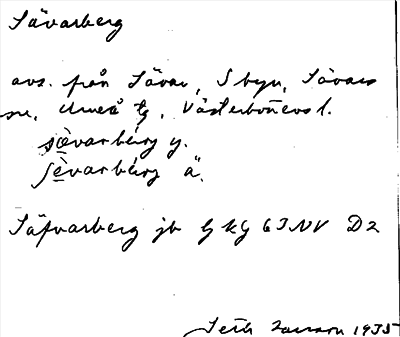 Sävarberg
avs. från Sävar, S byn, Sävars
sn, Umeå tg, Västerbottens l.
sævarbærg y.
sèvarbärg ä.
Säfvarberg jb GkG 63NV D2
Seth Larsson 1935